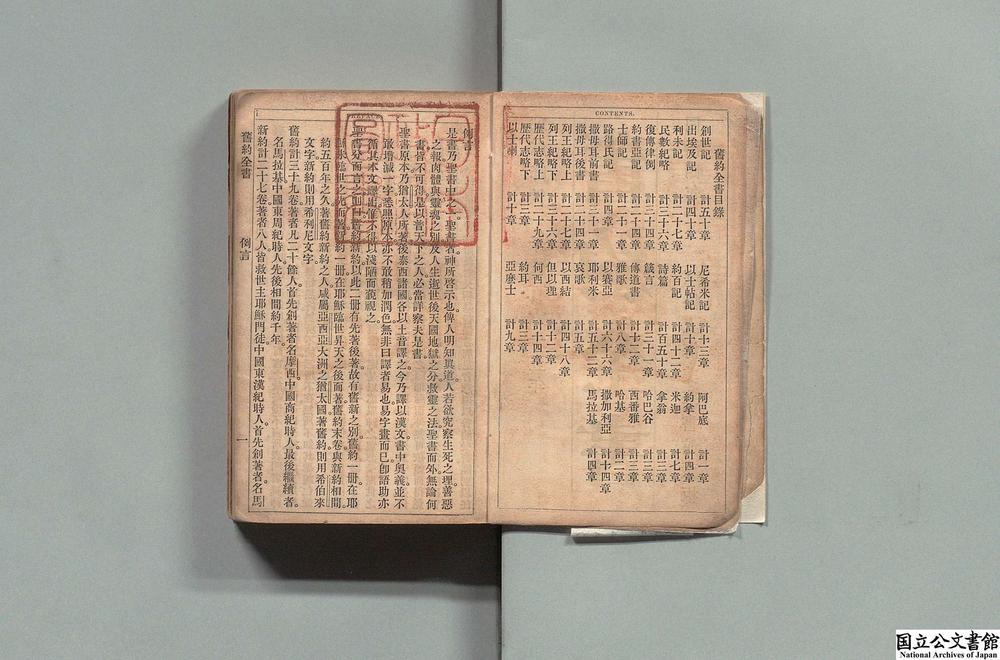 CONTENTS.
舊約全書目錄
創世記 計五十章 尼希米記 計十三章 阿巴底 計一章
出埃及記 計四十章 以士帖記 計十章 約拿 計四章
利未記 計二十七章 約百記 計四十二章 米迦 計七章
民數紀略 計三十六章 詩篇 計百五十章 拿翁 計三章
復傳律例 計三十四章 箴言 計三十一章 哈巴谷 計三章
約書亞記 計二十四章 傳道書 計十二章 西番雅 計三章
士師記 計二十一章 雅歌 計八章 哈基 計二章
路得氏記 計四章 以賽亞 計六十六章 撒加利亞 計十四章
撒母耳前書 計三十一章 耶利米 計五十二章 馬拉基 計四章
撒母耳後書 計二十四章 哀歌 計五章
列王紀略上 計二十二章 以西結 計四十八章
列王紀略下 計二十五章 但以理 計十二章
歷代志略上 計二十九章 何西 計十四章
歷代志略下 計三十六章 約耳 計三章
以士喇 計十章 亞麽士 計九章
例言
是書乃聖書中之一聖書者神所啓示也。傳人明知眞道人若欲究察生死之理善惡
之報肉體與靈魂之別及人生逝世後天國地獄之分救靈之法聖書而外無論何
書皆不可得是以普天下之人必當詳察夫是書
聖書原本乃猶太人所著後泰西諸國各以土音譯之今乃譯以漢文書中奧義並不
敢增減一字悉照原本亦不敢稍加潤色無非曰譯者易也易字畫而已卽語助亦
循其本文譯出惟不得以淺陋而藐視之。
聖書分而言之則曰舊約新約以此二册有先著後著故有舊新之別舊約一册在耶
穌未臨世之先而著新約一册在耶穌臨世昇天之後而著舊約末卷與新約相間
約五百年之久著舊約新約之人咸屬亞西亞大洲之猶太國著舊約則用希伯來
文字新約則用希利尼文字。
舊約計三十九卷著者凡二十餘人首先創著者名摩西中國商紀時人最後繼續者。
名馬拉基中國東周紀時人先後相間約千年。
新約計二十七卷著者八人皆救世主耶穌門徒中國東漢紀時人。首先創著者名馬
舊約全書 例言 一
国立公文書館
National Archives of Japan